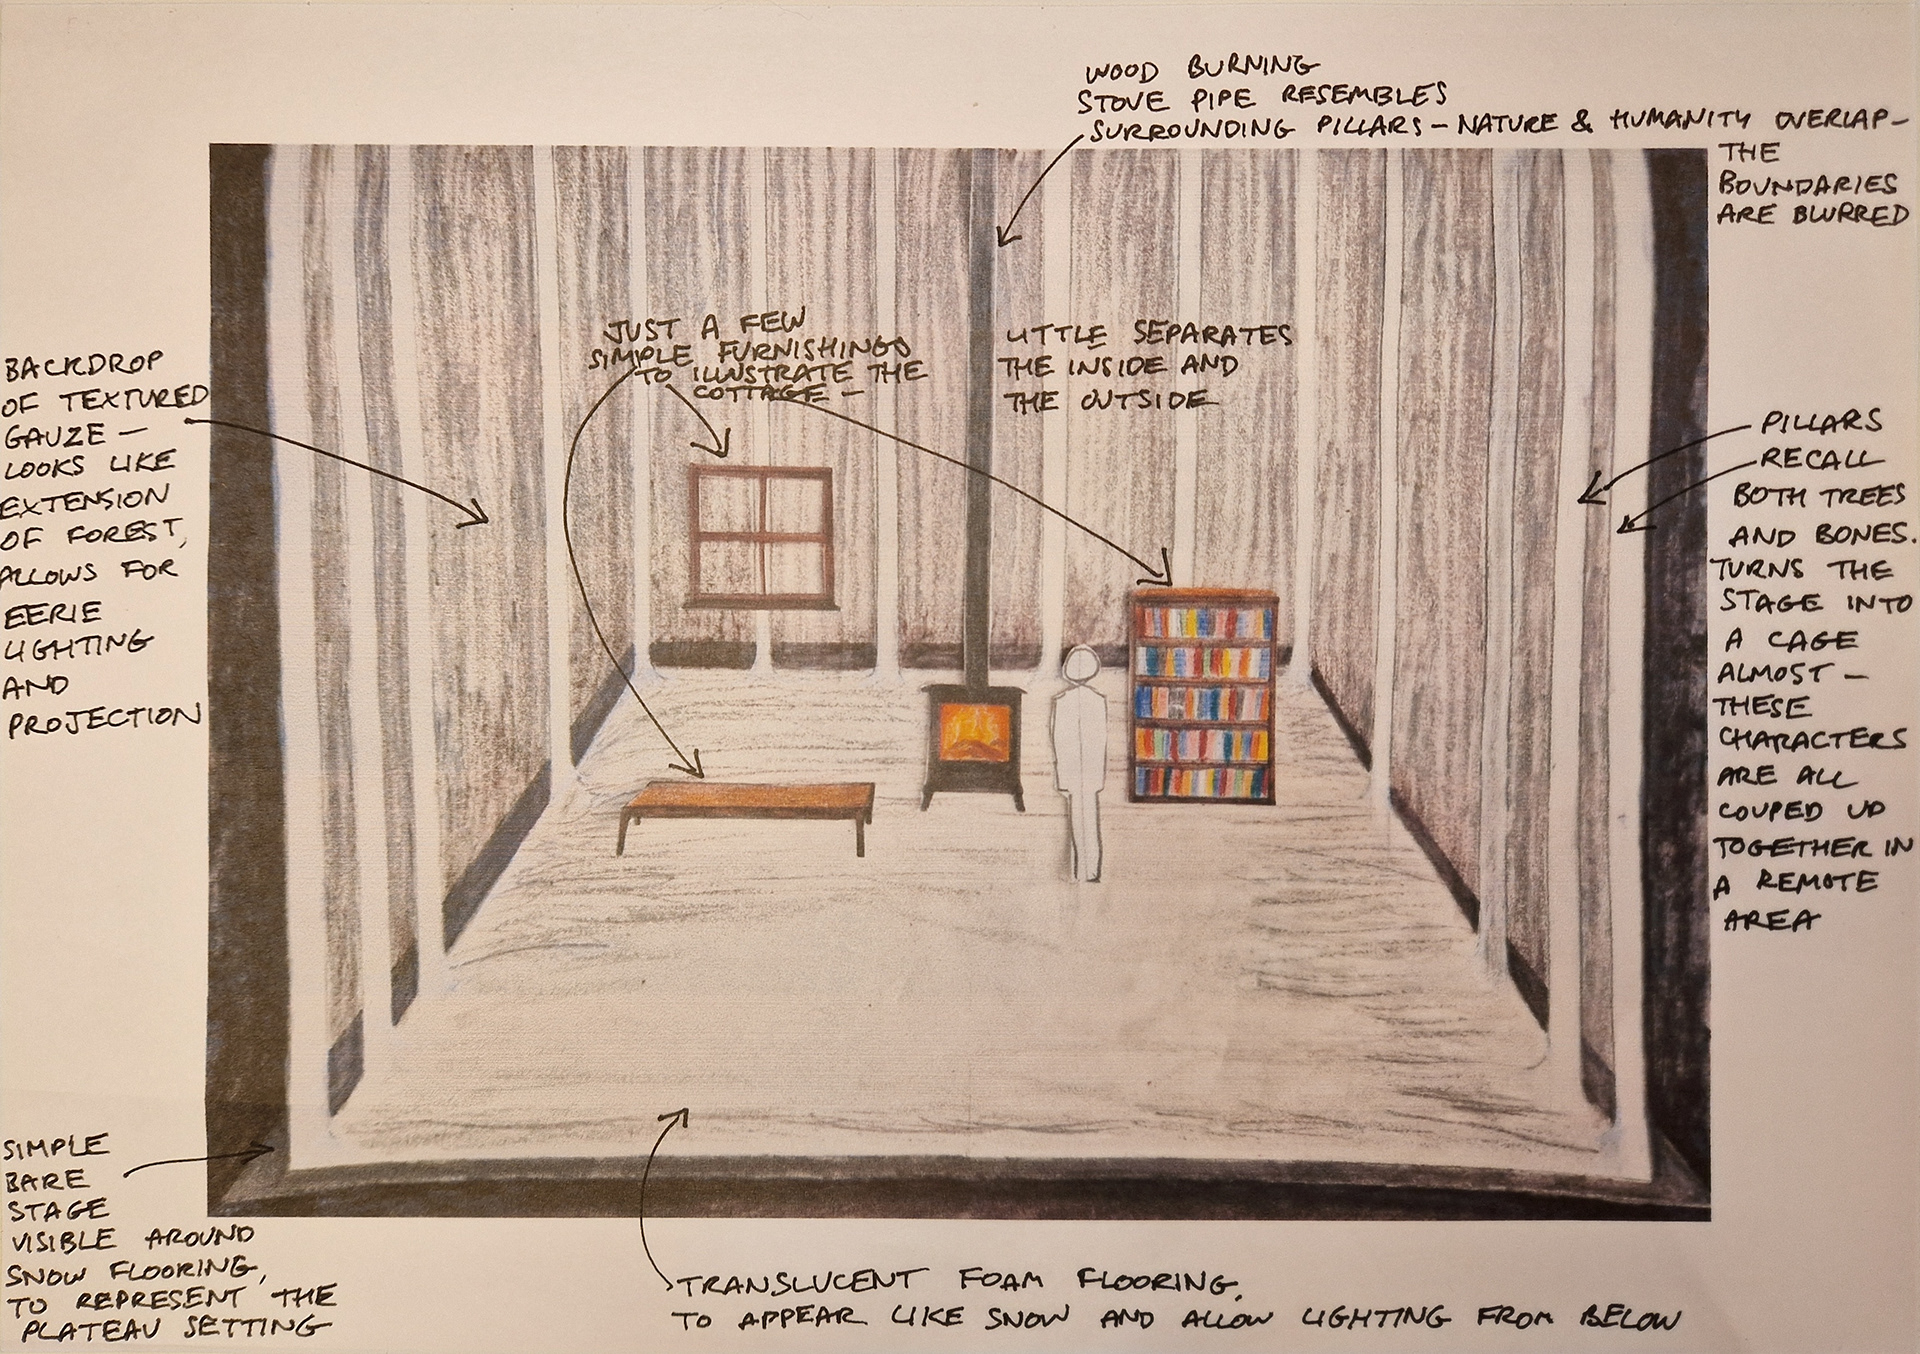 WOOD BURNING
STOVE PIPE RESEMBLES
SURROUNDING PILLARS – NATURE & HUMANITY OVERLAP –
THE
BOUNDARIES
ARE BLURRED
JUST A FEW
SIMPLE FURNISHINGS
TO ILLUSTRATE THE
COTTAGE –
LITTLE SEPARATES
THE INSIDE AND
THE OUTSIDE
BACKDROP
OF TEXTURED
GAUZE –
LOOKS LIKE
EXTENSION
OF FOREST,
ALLOWS FOR
EERIE
LIGHTING
AND
PROJECTION
PILLARS
RECALL
BOTH TREES
AND BONES.
TURNS THE
STAGE INTO
A CAGE
ALMOST –
THESE
CHARACTERS
ARE ALL
COUPED UP
TOGETHER IN
A REMOTE
AREA
SIMPLE
BARE
STAGE
VISIBLE AROUND
SNOW FLOORING,
TO REPRESENT THE
PLATEAU SETTING
TRANSLUCENT FOAM FLOORING,
TO APPEAR LIKE SNOW AND ALLOW LIGHTING FROM BELOW